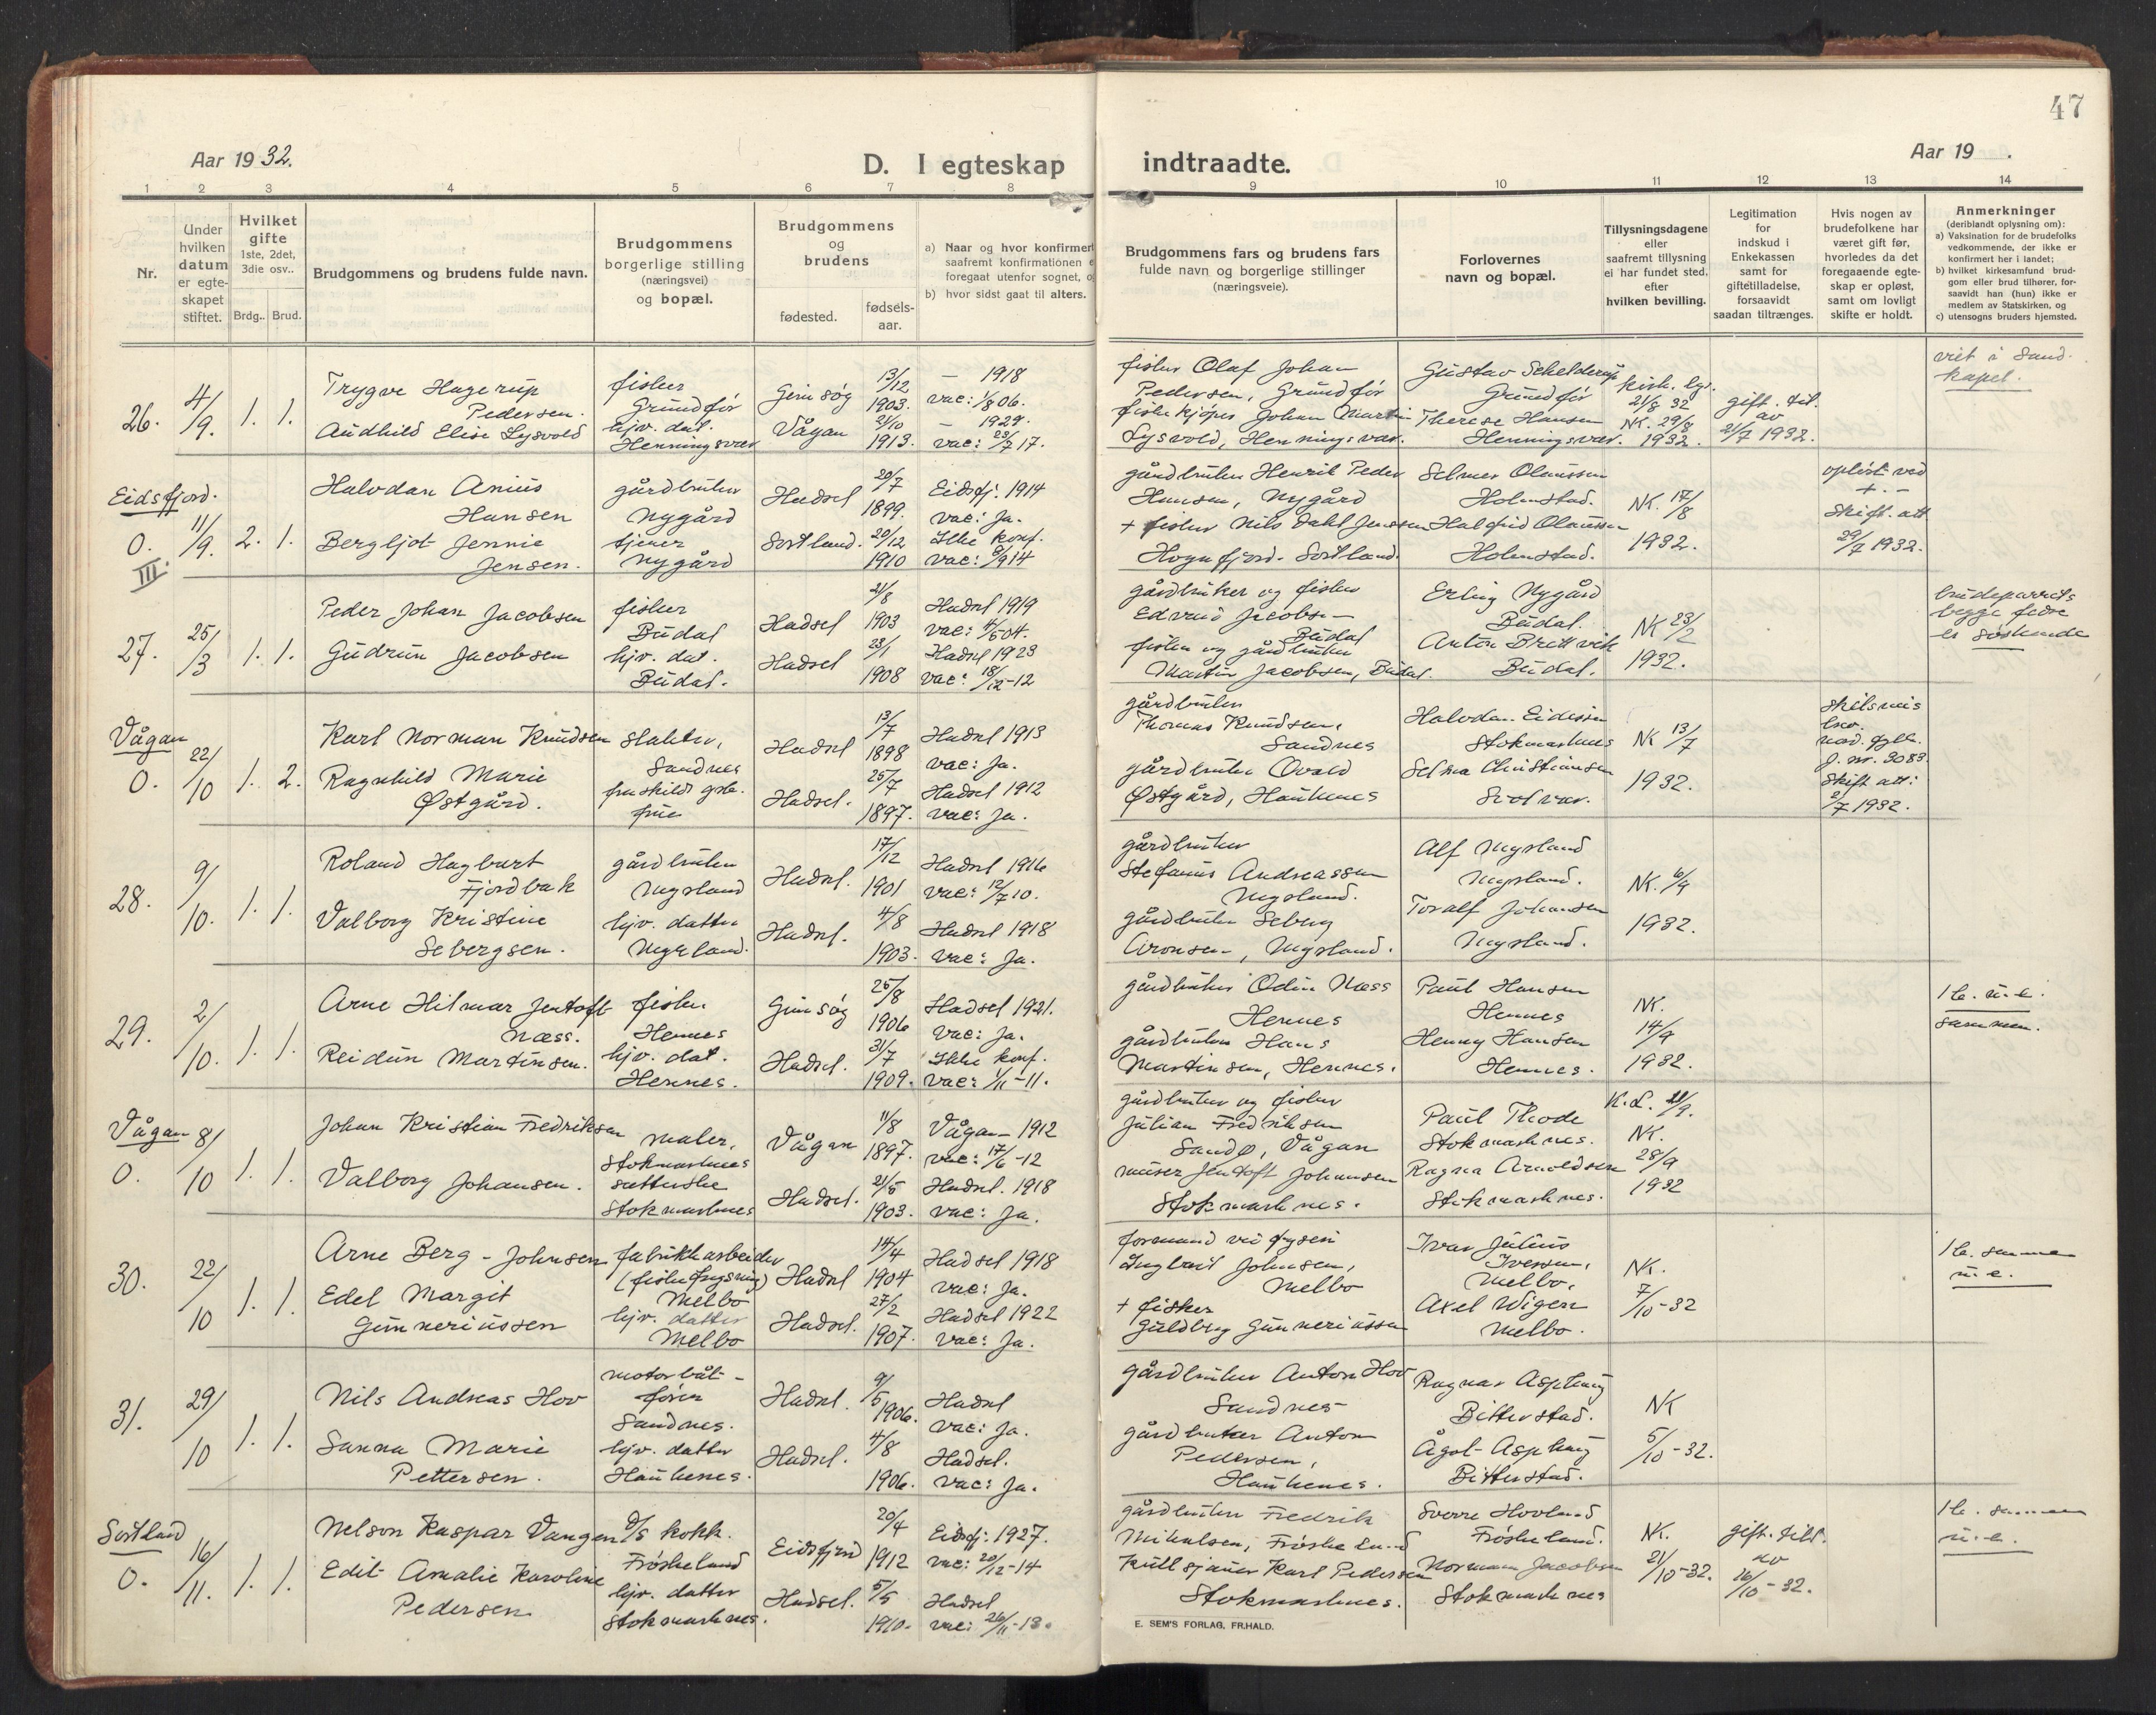 47
Aar 1932.
D. I egteskap indtraadte.
Aar 19 .
1 2 3 4 5 6 7 8 9 10 11 12 13 14
Nr.
Under hvilken datum er egteskapet stiftet.
Hvilket gifte 1ste, 2det, 3die osv..
Brdg.. Brud.
Brudgommens og brudens fulde navn.
Brudgommens borgerlige stilling (næringsvei) og bopæl.
Brudgommens og brudens
fødested.
fødsels-aar.
a) Naar og hvor konfirmert
saafremt konfirmationen e
foregaat utenfor sognet, o
b) hvor sidst gaat til alters.
Brudgommens fars og brudens fars fulde navn og borgerlige stillinger (næringsveie).
Forlovernes navn og bopæl.
Tillysningsdagene eller saafremt tillysning ei har fundet sted, efter hvilken bevilling.
Legitimation for indskud i Enkekassen samt for giftetilladelse, forsaavidt saadan tiltrænges.
Hvis nogen av brudefolkene har været gift før, hvorledes da det foregaaende egteskap er opløst, samt om lovligt skifte er holdt.
Anmerkninger (deriblandt oplysning om):
a) Vaksination for de brudefolks vedkommende, der ikke er konfirmert her i landet;
b) hvilket kirkesamfund brudgom eller brud tilhører, forsaavidt han (hun) ikke er medlem av Statskirken, og
c) utensogns bruders hjemsted.
26. 4/9. 1. 1.
Trygve Hagerup Pedersen.
fisker Grundfør
Gimsøy 13/12 1903.
— 1918 vac: 1/8 06.
fisker Olaf Johan Pedersen, Grundfør
Gustav Schelderup Grundfør
kirk. lys. 21/8 32
viet i Sand. kapel.
Audhild Elise Lysvold
hjv. dat. Henningsvær
Vågan 21/10 1913.
— 1929. vac: 23/7 17.
fiskekjøper Johan Martin Lysvold, Henningsvær.
Therese Hansen Henningsvær.
NK. 29/8 1932.
gift. til. av 21/7 1932.
Eidsfjord.
0. III. 11/9. 2. 1.
Halvdan Anius Hansen
gårdbruker Nygård
Hadsel 20/7 1899.
Eidsfj. 1914 vac: Ja.
gårdbruker Henrik Peder Hansen, Nygård
Selmer Olaussen Holmstad.
NK. 17/8 1932.
opløst ved + . — Skift. att 29/7 1932.
Bergljot Jennie Jensen.
tjener Nygård
Sortland. 20/12 1910
Ikke konf. vac: 9/9 14
+ fisker Nils Dahl Jenssen Hognfjord. Sortland
Halfrid Olaussen Holmstad.
27. 25/3 1. 1.
Peder Johan Jacobsen
fisker Budal
Hadsel 21/8 1903
Hadsel 1919 vac: 4/5 04.
gårdbruker og fisker Edvard Jacobsen Budal
Erling Nygård Budal.
NK 23/2 1932.
brudeparrets begge fedre er søskende
Gudrun Jacobsen
hjv. dat. Budal.
Hadsel 23/1 1908
Hadsel 1923 vac: 18/12-12
fisker og gårdbruker Martin Jacobsen, Budal.
Anton Brettvik Budal.
Vågan
0. 22/10 1. 2.
Karl Norman Knudsen
slakter, Sandnes
Hadsel 13/7 1898
Hadsel 1913 vac: Ja.
gårdbruker Thomas Knudsen, Sandnes
Halvdan Eidissen Stokmarknes
NK 13/7 1932.
skilsmis bev. nord. fylke. J. nr. 3083 Skift att: 2/7 1932.
Ragnhild Marie Østgård.
fraskildt frue
Hadsel. 25/7 1897.
Hadsel 1912 vac: Ja.
gårdbruker Ovald Østgård, Haukenes
Selma Christiansen Svolvær.
28. 9/10. 1. 1.
Roland Hagbart Fjordbak
gårdbruker Uggsland
Hadsel. 17/12 1901
Hadsel 1916 vac: 12/7 10.
gårdbruker Stefanus Andreassen
Alf
NK. 6/9 1932.
Valborg Kristine Sebergsen.
hjv. datter
Hadsel. 4/8 1903.
Hadsel 1918 vac: Ja.
gårdbruker Seberg Aronsen,
Toralf Johansen
29. 2/10. 1. 1.
Arne Hilmar Jentoft Næss.
fisker. Hennes
Gimsøy 25/8 1906
Hadsel 1921. vac: Ja.
gårdbruker Odin Næss Hennes
Paul Hansen Hennes
NK. 14/9 1932.
1 b. u. e. sammen.
Reidun Martinsen.
hjv. dat. Hennes.
Hadsel. 31/7 1909.
Ikke konf. vac: 1/11-11.
gårdbruker Hans Martinsen, Hennes.
Henny Hansen Hennes.
Vågan
0. 8/10 1. 1.
Johan Kristian Fredriksen
maler, Stokmarknes
Vågan 11/8 1897.
Vågan 1912 vac: 17/6-12
gårdbruker og fisker Julian Fredriksen Sandø, Vågan
Paul Thode Stokmarknes.
K. L. 21/9. NK. 28/9 1932
Valborg Johansen.
Stokmarknes
Hadsel. 21/5 1903.
Hadsel. 1918 vac: Ja.
murer Jentoft Johansen Stokmarknes.
Ragna Arnoldsen Stokmarknes.
30. 22/10 1. 1.
Arne Berg-Johnsen
fabrikkarbeider (fiskefrysning) Melbo
Hadsel 14/4 1904
Hadsel 1918 vac: Ja.
formand ved fryseri Ingbart Johnsen, Melbo
Ivar Julius Iversen, Melbo,
NK. 7/10-32
1 b. sammen u. e.
Edel Margit Gunneriussen
hjv. datter Melbo
Hadsel. 27/2 1907.
Hadsel 1922 vac: Ja.
+ fisker Guldberg Gunneriussen
Axel Wigen Melbo.
31. 29/10 1. 1.
Nils Andreas Hov
motorbåt-fører Sandnes.
Hadsel. 9/5 1906.
Hadsel vac: Ja.
gårdbruker Anton Hov Sandnes
Ragnar Asphaug Bitterstad.
NK 5/10-32.
Sanna Marie Pettersen.
hjv. datter Haukenes.
Hadsel. 4/8 1906.
Hadsel. vac: Ja.
gårdbruker Anton Pedersen, Haukenes.
Ågot Asphaug Bitterstad.
Sortland
0. 16/11. 1. 1.
Nelson Kaspar Vangen
D/S kokk. Frøskeland
Eidsfjord 20/4 1912
Eidsfj. 1927. vac: 20/12-14
gårdbruker Fredrik Mikalsen, Frøskeland
Sverre Hovland Frøskeland.
NK. 21/10-32.
gift. till. av 16/10-32.
1 b. sammen u. e.
Edit Amalie Karoline Pedersen
hjv. datter Stokmarknes.
Hadsel. 5/5 1910.
Hadsel vac: 26/11-13.
Kullsjauer Karl Pedersen Stokmarknes.
Norman Jacobsen Stokmarknes
E. SEM'S FORLAG, FR.HALD.